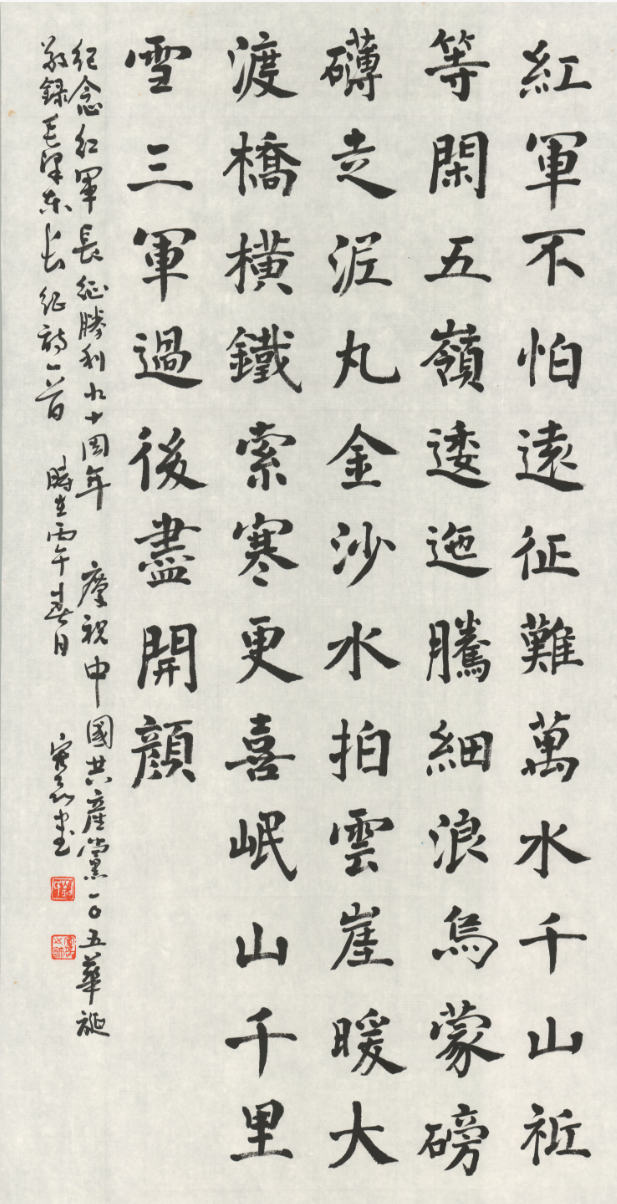 紅軍不怕遠征難萬水千山祇
等閑五嶺逶迤騰細浪烏蒙磅
礴走泥丸金沙水拍雲崖暖大
渡橋橫鐵索寒更喜岷山千里
雪三軍過後盡開顏
紀念紅軍長征勝利九十周年 慶祝中國共產黨一〇五華誕
敬錄毛澤東長征詩一首 時在丙午春日 書